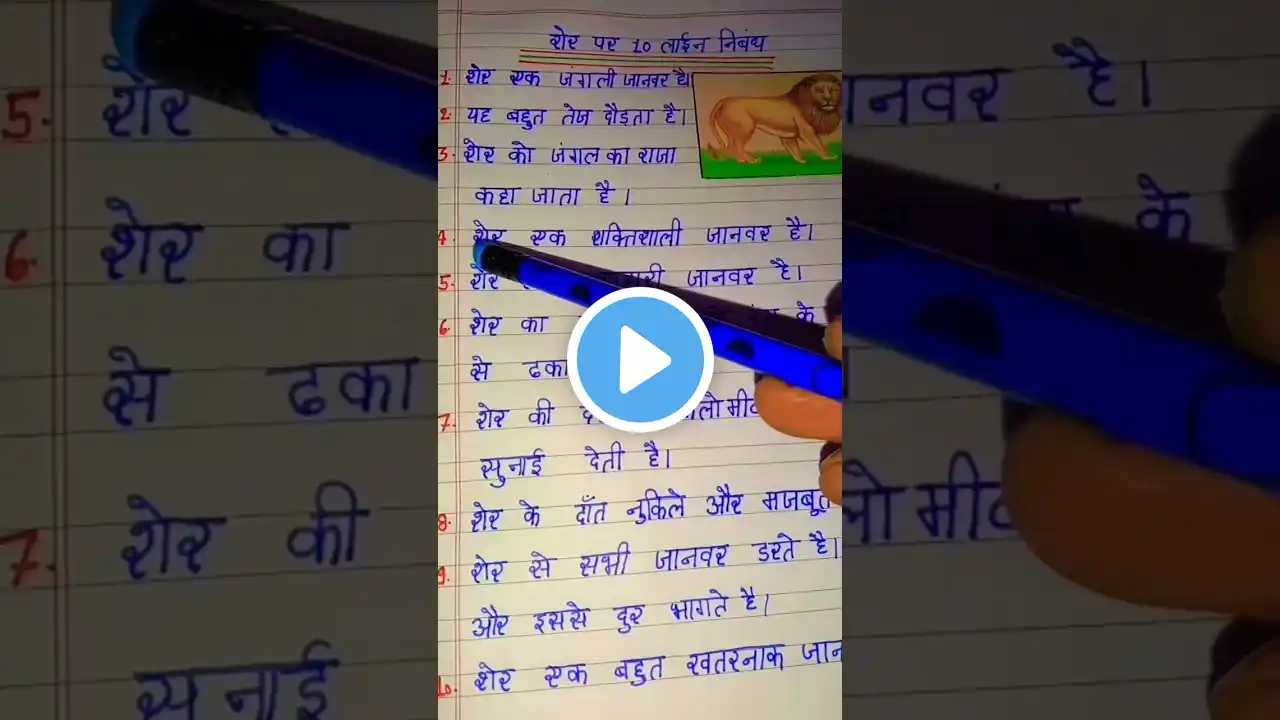 शेर पर 10 लाईन निबंध
1. शेर एक जंगली जानवर है।
2. यह बहुत तेज दौड़ता है।
3. शेर को जंगल का राजा
कहा जाता है।
4. शेर एक शक्तिशाली जानवर है।
5. शेर जानवर है।
6. शेर का के
से ढका
7. शेर की
सुनाई देती है।
8. शेर के दाँत नुकिले और मजबूत
9. शेर से सभी जानवर डरते है।
और इससे दुर भागते है।
शेर एक बहुत खतरनाक जान